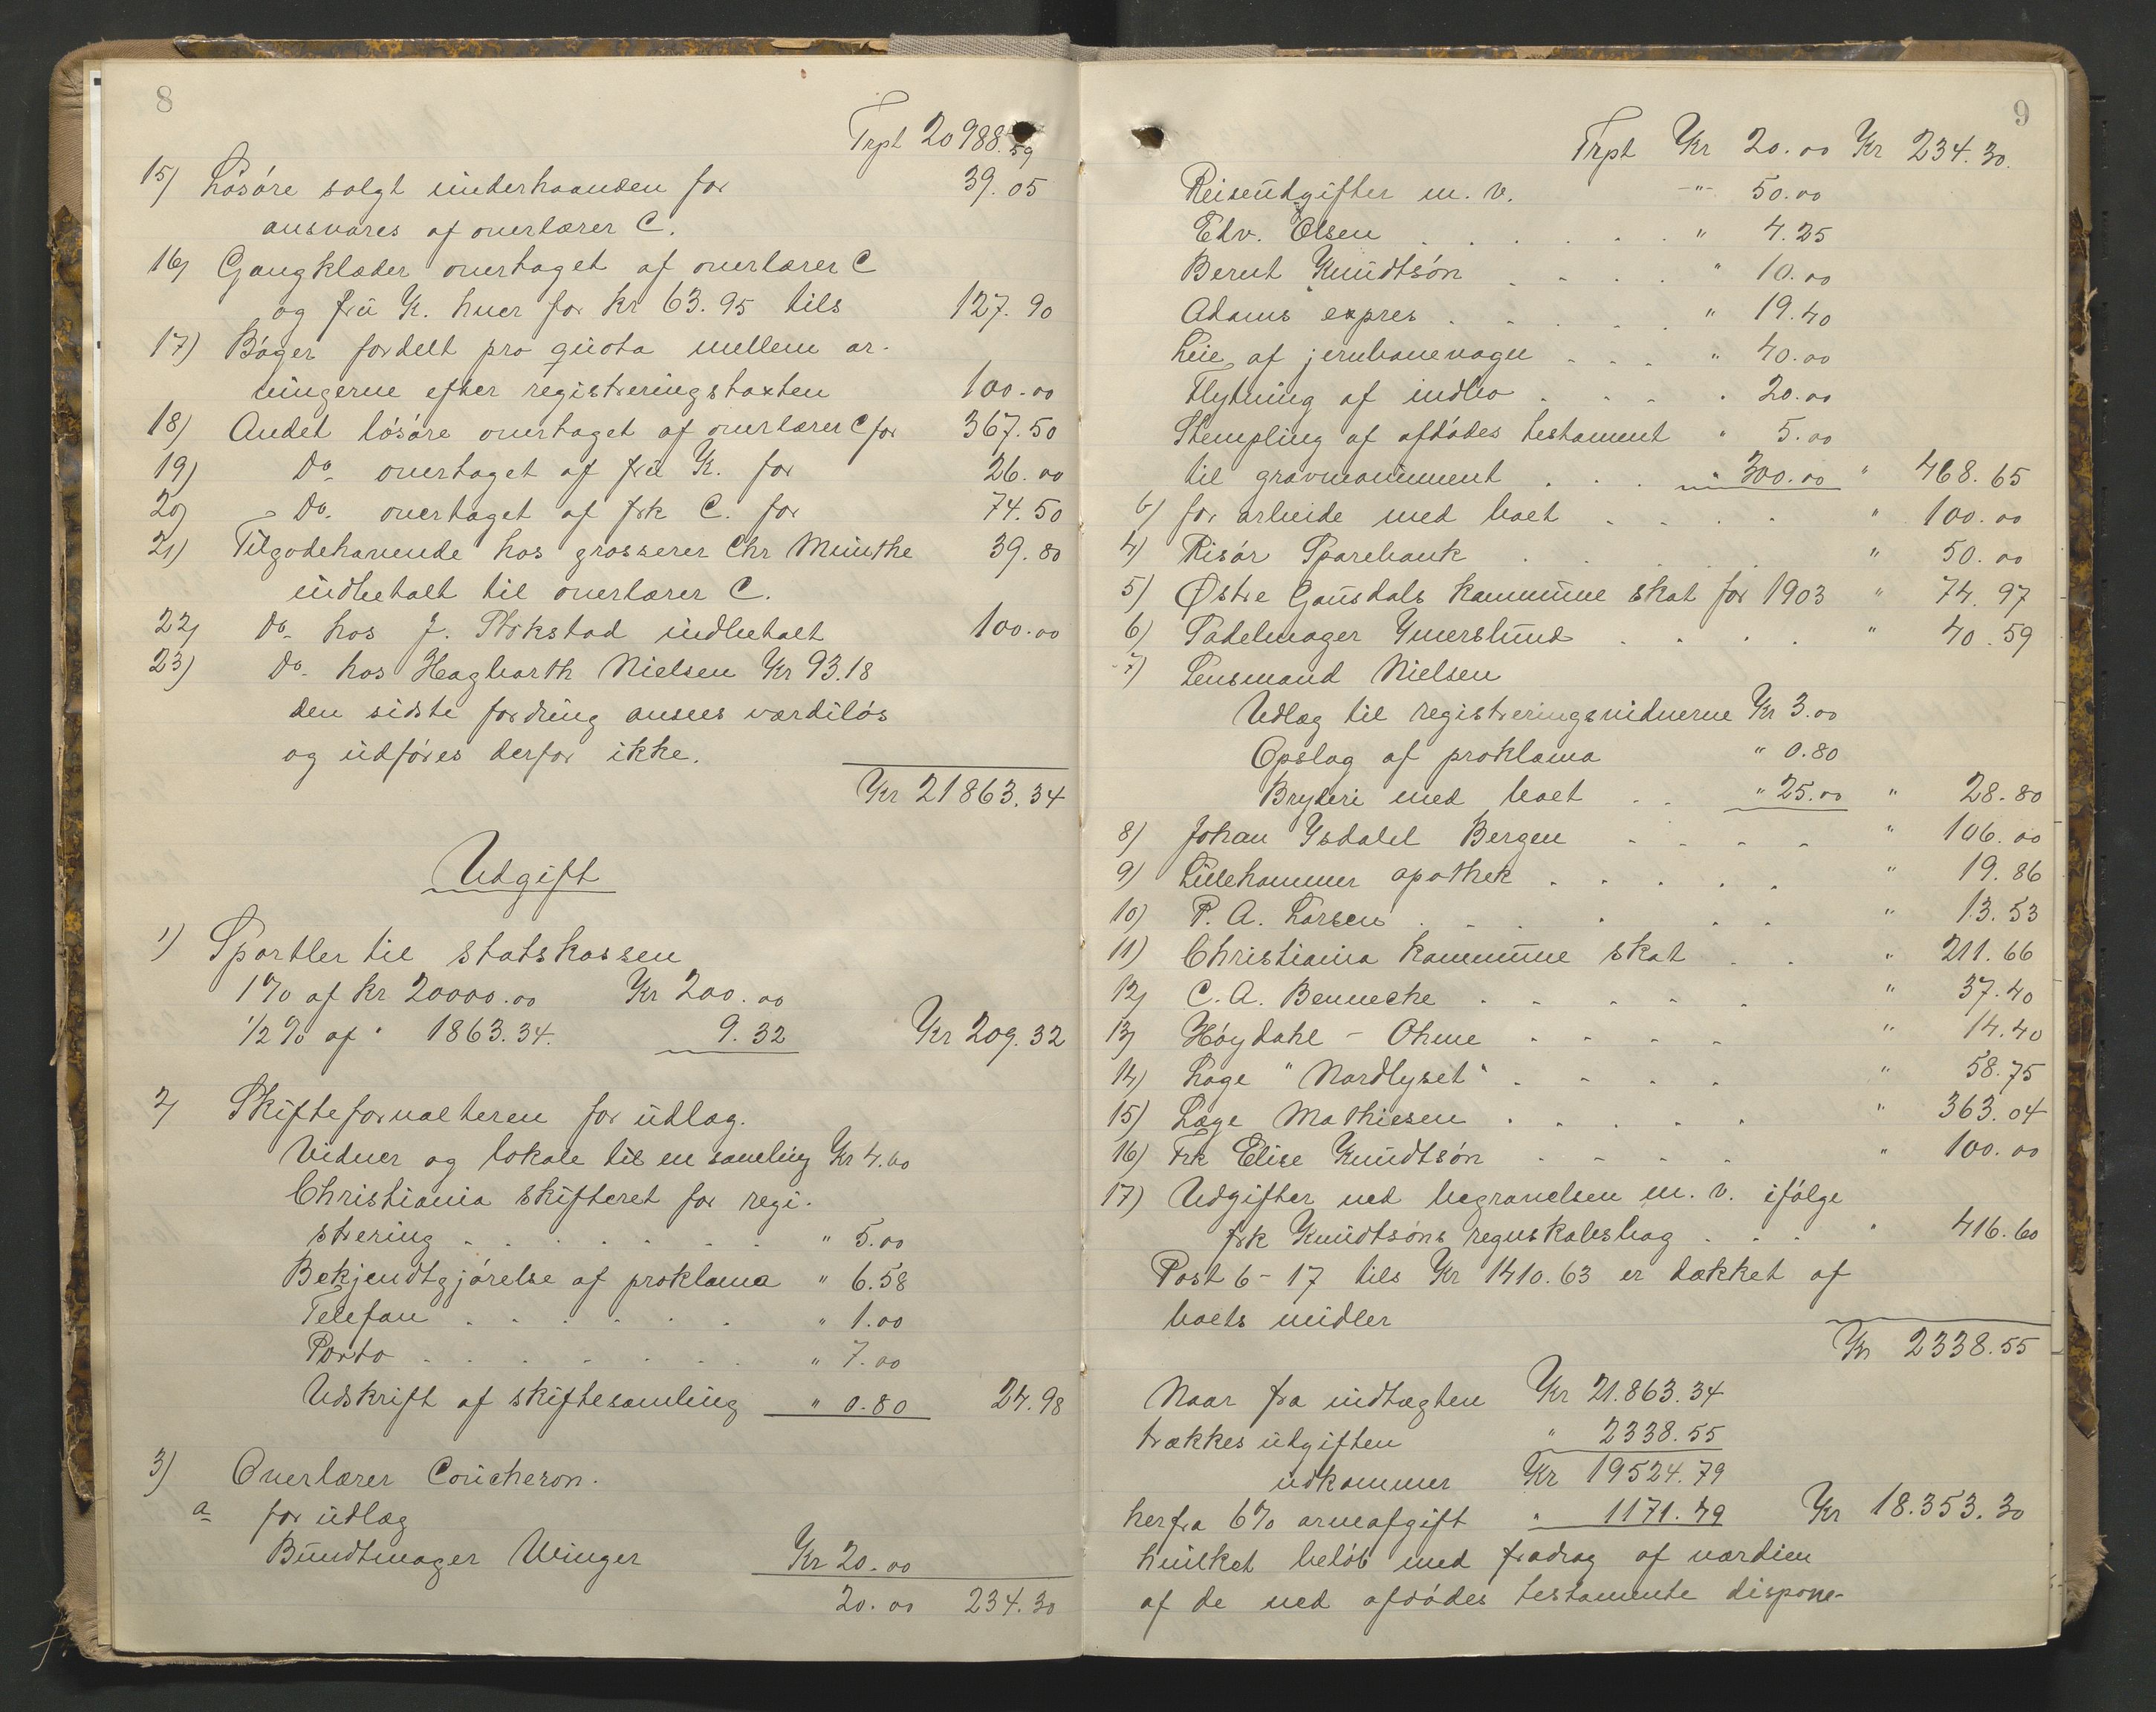 8
Trpt 20988.59
15) Løsøre solgt underhaanden for 39.05
ansvares af overlærer C.
16) Gangklæder overtaget af overlærer C
og frü K. hver for kr 63.95 tils 127.90
17) Bøger fordelt pro qüota mellem ar-
vingerne efter registreringstaxten 100.00
18) Andet løsøre overtaget af overlærer C for 367.50
19) Do. overtaget af frü K. for 26.00
20) Do. overtaget af frk C. for 74.50
21) Tilgodehavende hos grosserer Chr Münthe 39.80
indbetalt til overlærer C.
22) do. hos J. Stokstad indbetalt 100.00
23) do. hos Hagbarth Nielsen Kr 93.18
den sidste fordring ansees værdiløs
og üdføres derfor ikke.
Kr 21863.34
Udgift
1) Sportler til statskassen
1% af kr 20000.00 Kr 200.00
1/2% af " 1863.34. 9.32 Kr 209.32
2) Skifteforvalteren for üdlæg.
Vidner og lokale til en samling Kr 4.60
Christiania skifteret for regi-
strering " 5.00
Bekjendtgjørelse af proklama " 6.58
Telefon " 1.00
Porto " 7.00
Udskrift af skiftesamling " 0.80 24.98
3) Overlærer Coücheron.
a for üdlæg
Bündtmager Winger Kr 20.00
20.00 234.30
9
Trpt Kr 20.00 Kr 234.30.
Reiseüdgifter m. v. -"- 50.00
Edv. Olsen " 4.25
Bernt Knüdtsøn " 10.00
Adams expres " 19.40
Leie af jernbanevogn " 40.00
Flytning af indbo " 20.00
Stempling af afdødes testament " 5.00
til gravmonüment " 300.00 " 468.65
b) for arbeide med boet " 100.00
4) Risør Sparebank " 50.00
5) Østre Gaüsdals kommüne skat for 1903 " 74.97
6) Sadelmager Ynerslünd " 40.59
7) Lensmand Nielsen
Udlæg til registreringsvidnerne Kr 3.00
Opslag af proklama " 0.80
Bryderi med boet " 25.00 " 28.80
8) Johan Ysdahl Bergen " 106.00
9) Lillehammer apothek " 19.86
10) P. A. Larsen " 13.53
11) Christiania kommüne skat " 211.66
12) C. A. Bennecke " 37.40
13) Høydahl - Ohme " 14.40
14) Loge "Nordlyset" " 58.75
15) Læge Mathiesen " 363.04
16) Frk Elise Knüdtsøn " 100.00
17) Udgifter ved begravelsen m. v. ifølge
frk Knüdtsøns regnskabsbog " 416.60
Post 6 - 17 tils Kr 1410.63 er dækket af
boets midler
Kr 2338.55
Naar fra indtægten Kr 21.863.34
trækkes üdgiften " 2338.55
üdkommer Kr 19524.79
herfra 6% arveafgift " 1171.49 Kr 18.353.30
hvilket beløb med fradrag af værdien
af de ved afdødes testamente dispone-